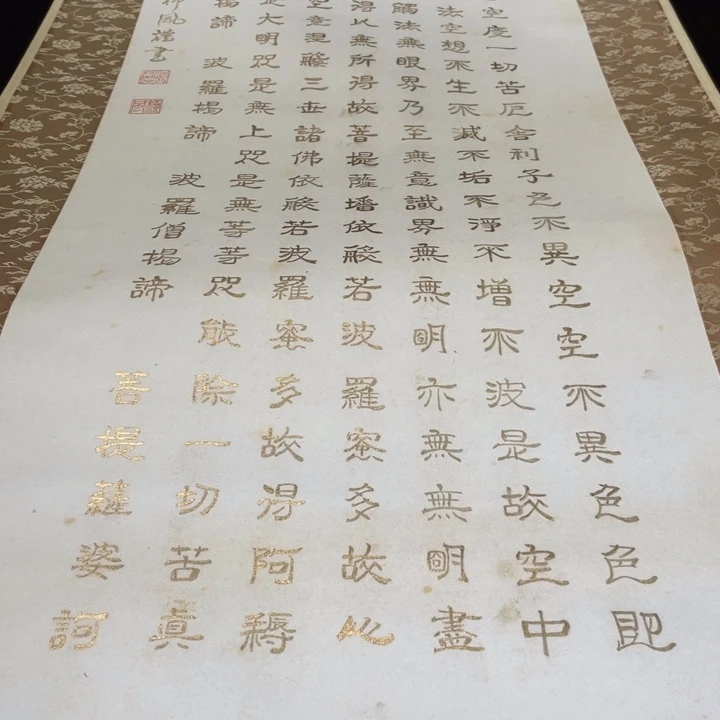 空度一切苦厄舍利子色不異空空不異色色即
法空想不生不滅不垢不淨不增不波是故空中
觸法無眼界乃至無意識界無無明亦無無明盡
得以無所得故菩提薩埵依般若波羅蜜多故心
竟涅槃三世諸佛依般若波羅蜜多故得阿耨
是大明咒是無上咒是無等等咒能除一切苦真
揭諦 波羅揭諦 波羅僧揭諦 菩提薩婆訶
謹書